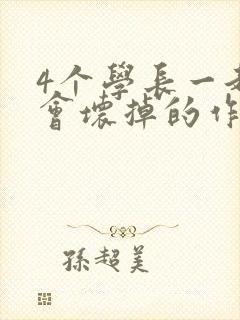 4个學長一
會壞掉的作
孫超美